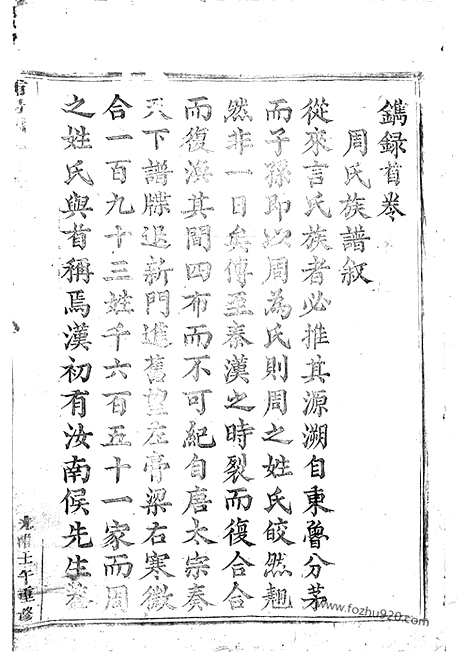 鐫録首卷
周氏族譜叙
從來言氏族者必推其源溯自東魯分茅
而子孫即以周為氏則周之姓氏皎然翹
然非一日矣傳至秦漢之時裂而復合合
而復渙其間四布而不可紀自唐太宗奏
天下譜牒退新門進舊望左膏梁右寒微
合一百九十三姓千六百五十一家而周
之姓氏與首稱焉漢初有汝南侯先生
光緒壬午重修
www.fozhu920.com